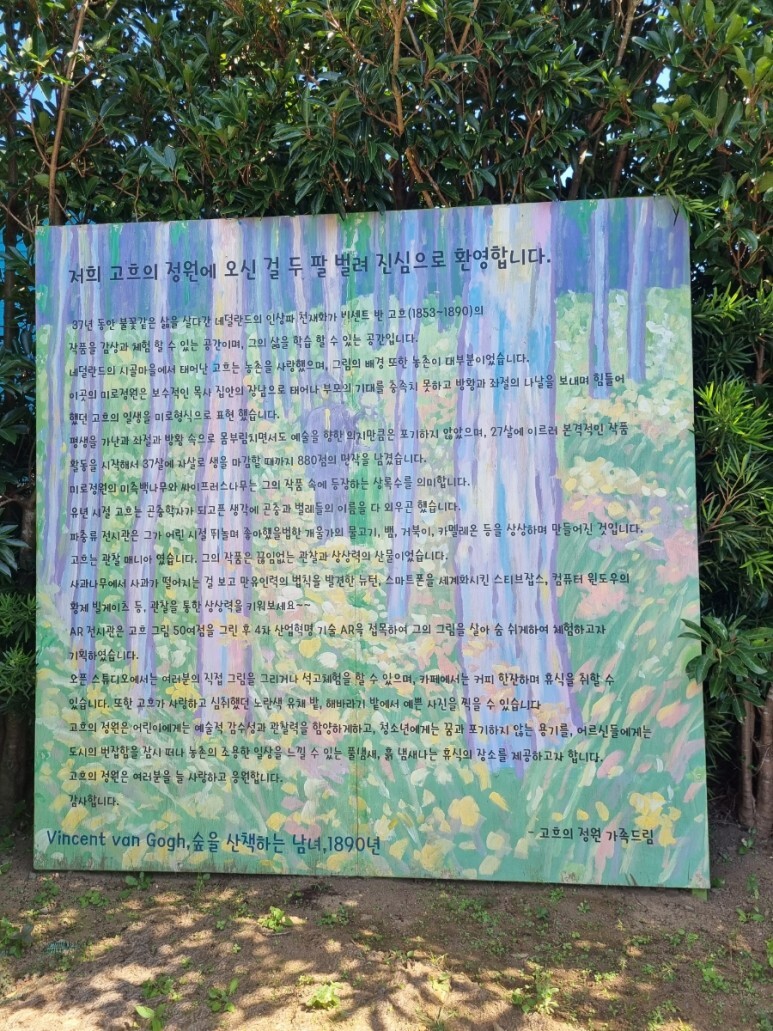 저희 고흐의 정원에 오신 걸 두 팔 벌려 진심으로 환영합니다.
37년 동한 불꽃같은 삶을 살다간 네덜란드의 인상파 천재화가 빈센트 반 고흐(1853~1890)의
작품을 감상과 체험 할 수 있는 공간이며, 그의 삶을 학습 할 수 있는 공간입니다.
네덜란드의 시골마을에서 태어난 고흐는 농촌을 사랑했으며, 그림의 배경 또한 농촌이 대부분이었습니다.
이곳의 미로정원은 보수적인 목사 집안의 장남으로 태어나 부모의 기대를 충족치 못하고 방황과 좌절의 나날을 보내며 힘들어
했던 고흐의 인생을 미로형식으로 표현 했습니다.
평생을 가난과 좌절과 방황 속으로 몸부림치면서도 예술을 향한 의지만큼은 포기하지 않았으며, 27살에 이르러 본격적인 작품
활동을 시작해서 37살에 자살로 생을 마감할 때까지 880점의 면작을 남겼습니다.
미로정원의 미측백나무와 싸이프러스나무는 그의 작품 속에 등장하는 상록수를 의미합니다.
유년 시절 고흐는 곤충학자가 되고픈 생각에 곤충과 벌레들의 이름을 다 외우곤 했습니다.
파충류 전시관은 그가 어린 시절 뛰놀며 좋아했을법한 개울가의 물고기, 뱀, 거북이, 카멜레온 등을 상상하며 만들어진 것입니다.
고흐는 관찰 매니아 였습니다. 그의 작품은 끊임없는 관찰과 상상력의 산물이었습니다.
사과나무에서 사과가 떨어지는 걸 보고 만유인력의 법칙을 발견한 뉴턴, 스마트폰을 세계화시킨 스티브잡스, 컴퓨터 윈도우의
황제 빌게이츠 등, 관찰을 통한 상상력을 키워보세요~~
AR 전시관은 고흐 그림 50여점을 그린 후 4차 산업혁명 기술 AR을 접목하여 그의 그림을 살아 숨 쉬게하여 체험하고자
기획하였습니다.
오픈 스튜디오에서는 여러분의 직접 그림을 그리거나 석고체험을 할 수 있으며, 카페에서는 커피 한잔하며 휴식을 취할 수
있습니다. 또한 고흐가 사랑하고 심취했던 노란색 유채 밭, 해바라기 밭에서 예쁜 사진을 찍을 수 있습니다
고흐의 정원은 어린이에게는 예술적 감수성과 관찰력을 함양하게하고, 청소년에게는 꿈과 포기하지 않는 용기를, 어르신들에게는
도시의 번잡함을 잠시 떠나 농촌의 조용한 일상을 느낄 수 있는 풀냄새, 흙 냄새나는 휴식의 장소를 제공하고자 합니다.
고흐의 정원은 여러분을 늘 사랑하고 응원합니다.
감사합니다.
- 고흐의 정원 가족드림
Vincent van Gogh,숲을 산책하는 남녀,1890년